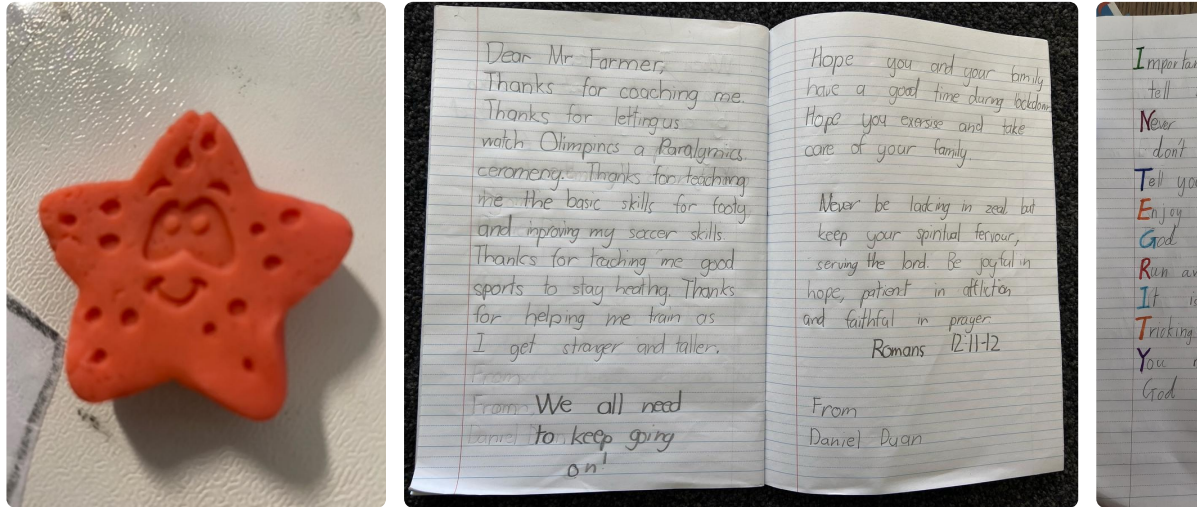 Dear Mr Farmer,
Thanks for coaching me.
Thanks for letting us
watch Olimpincs a Paralymics
ceromeny. Thanks for teaching
me the basic skills for footy
and inproving my soccer skills.
Thanks for teaching me good
sports to stay healthy. Thanks
for helping me train as
I get stronger and taller.
From
From We all need
Daniel to keep going
on!
Hope you and your family
have a good time during lockdown
Hope you exersise and take
care of your family.
Never be lacking in zeal but
keep your spiritual fervour,
serving the lord. Be joyful in
hope, patient in affliction
and faithful in prayer.
Romans 12:11-12
From
Daniel Duan
Importan
tell
Never
don't
Tell you
Enjoy
God
Run aw
It i
Tricking
You
God